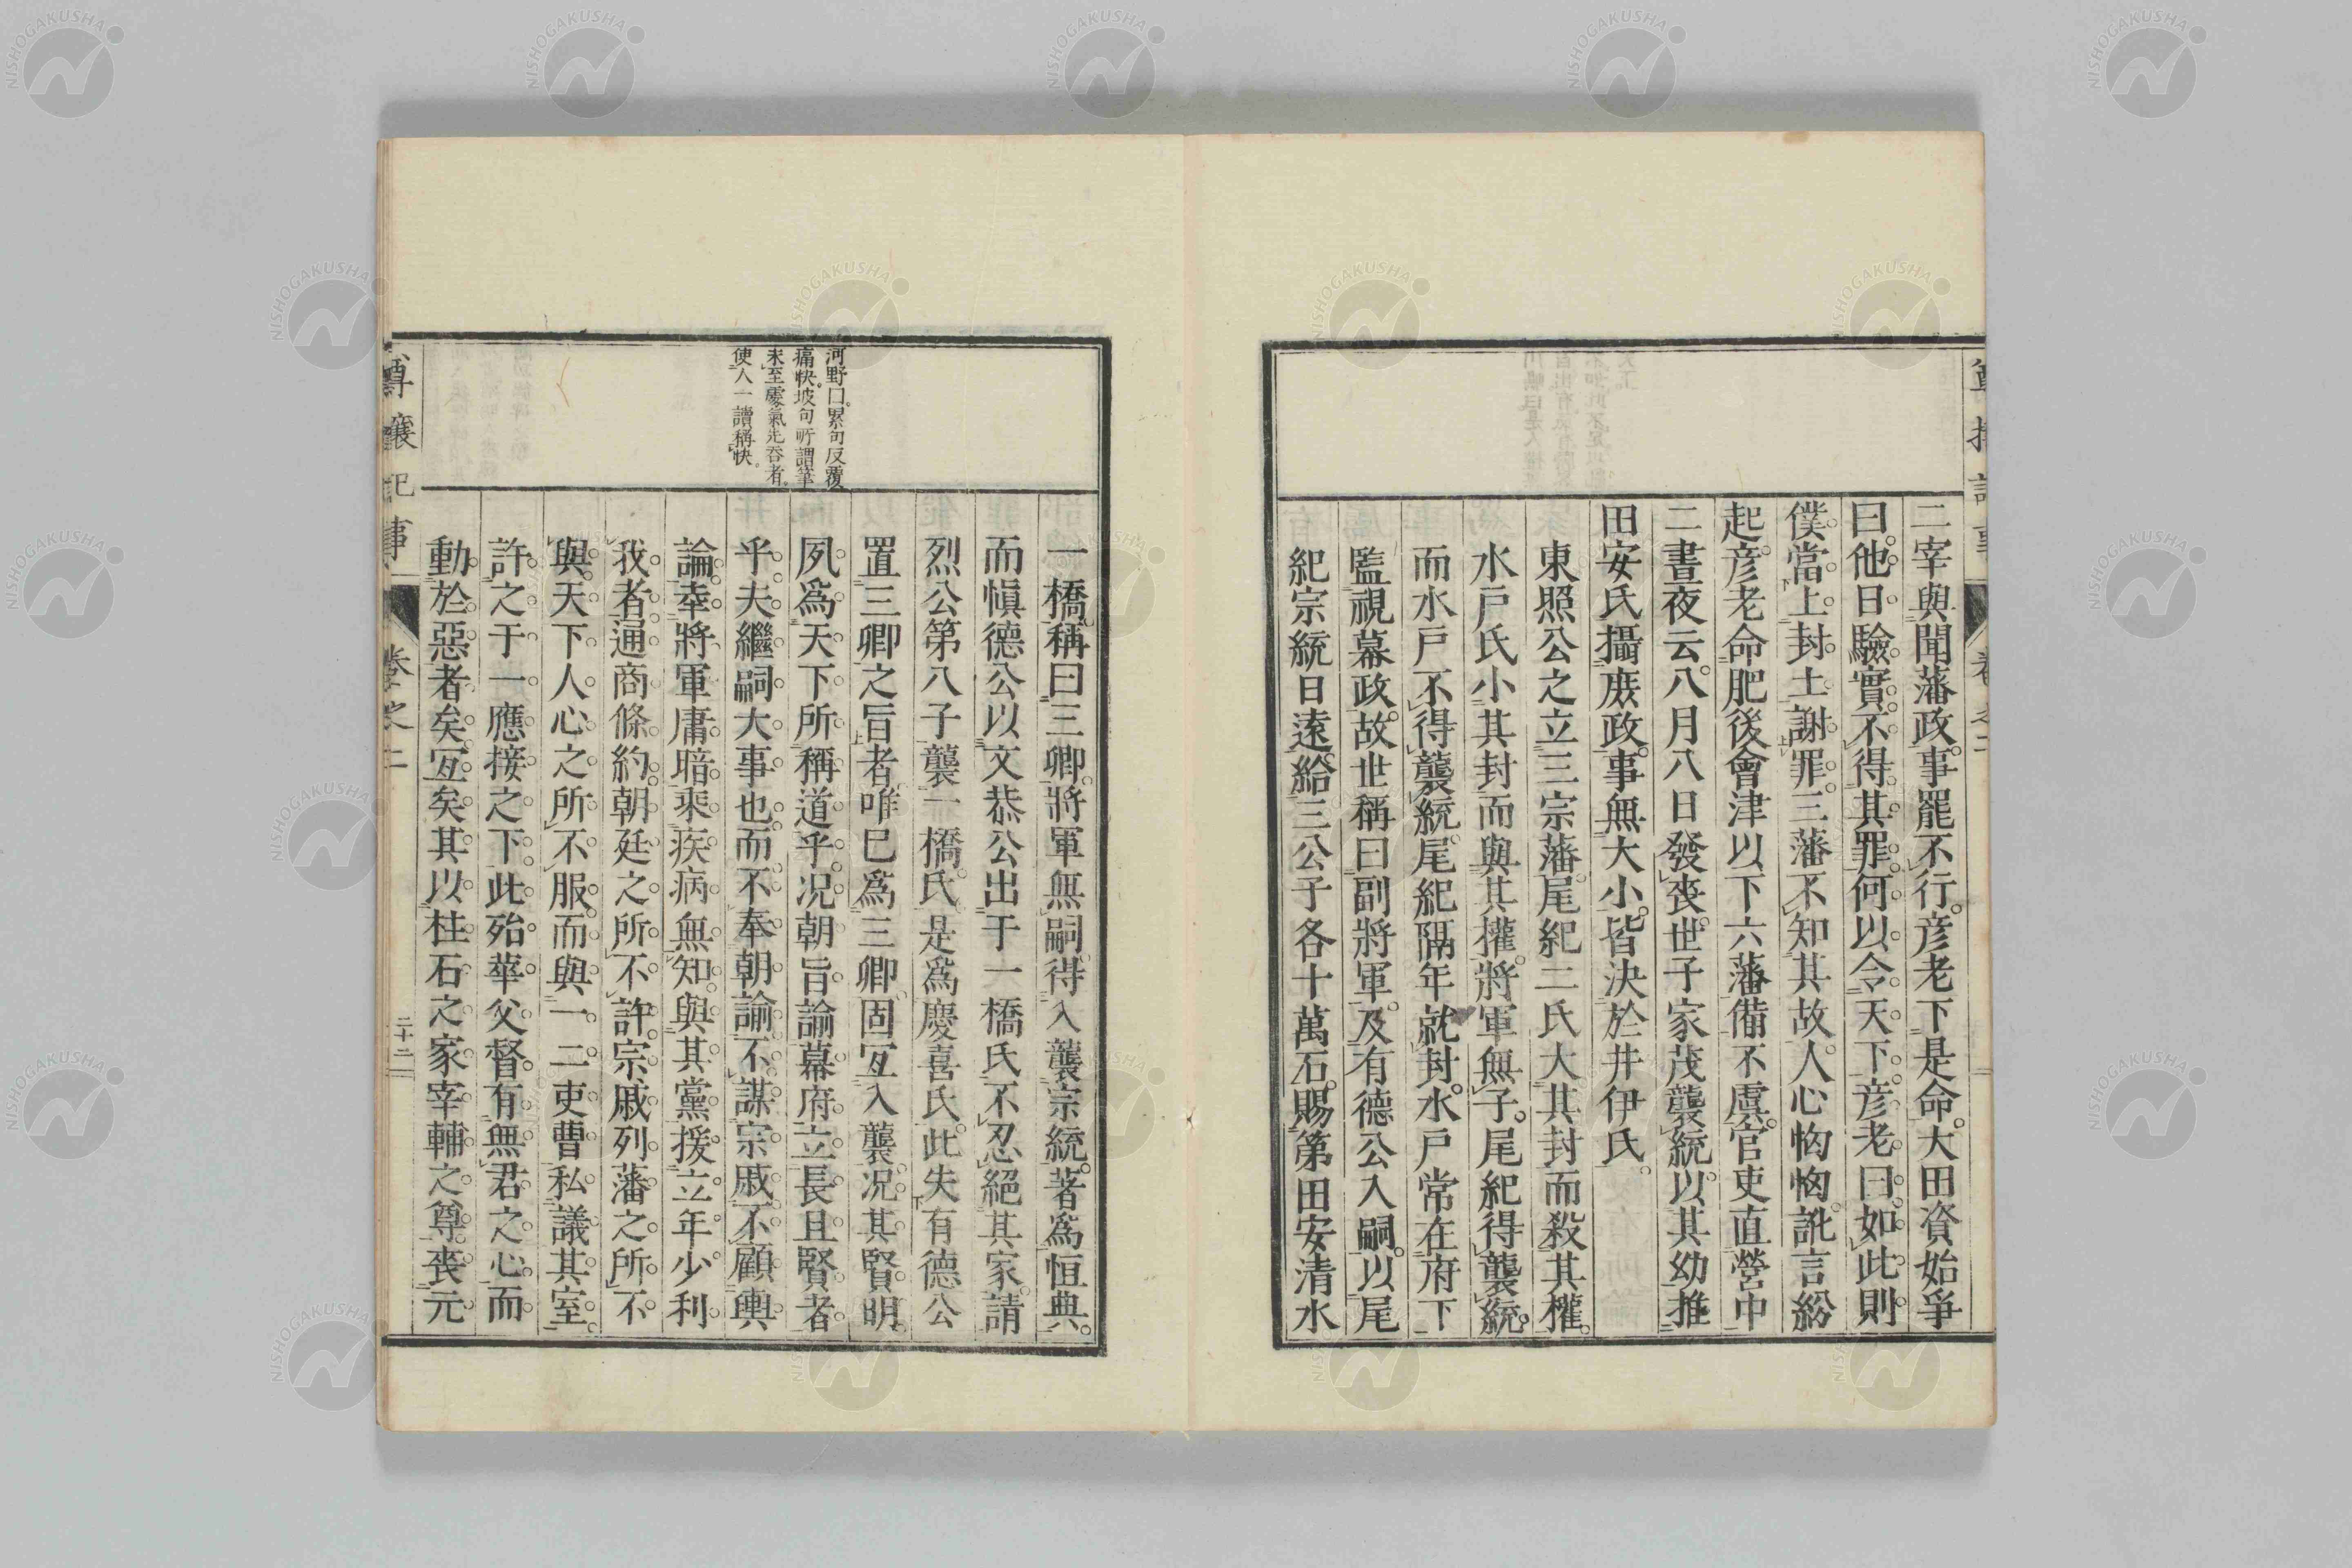 二宰與聞藩政。事罷不行。彦老下是命。大田資始爭
曰。他日驗實。不得其罪。何以令天下。彦老曰。如此則
僕當上封土謝罪。三藩不知其故。人心恟恟。訛言紛
起。彦老命肥後會津以下六藩備不虞。官吏直營中
二晝夜云。八月八日發喪。世子家茂襲統。以其幼推
田安氏攝庶政。事無大小。皆決於井伊氏。
東照公之立三宗藩。尾紀二氏大其封而殺其權。
水戸氏小其封而與其權。將軍無子。尾紀得襲統。
而水戸不得襲統。尾紀隔年就封。水戸常在府下
監視幕政。故世稱曰副將軍。及有德公入嗣。以尾
紀宗統日遠。給三公子各十萬石。賜第田安清水
一橋稱曰三卿。將軍無嗣。得入襲宗統。著爲恒典。
而愼德公以文恭公出于一橋氏不忍絕其家。請
烈公第八子襲一橋氏。是爲慶喜氏。此失有德公
置三卿之旨者。唯已爲三卿。固宜入襲。况其賢明。
夙爲天下所稱道乎。况朝旨諭幕府立長且賢者
乎。夫繼嗣大事也。而不奉朝諭。不謀宗戚。不顧輿
論。奉將軍庸暗乘疾病無知。與其黨援立年少利
我者。通商條約。朝廷之所不許。宗戚列藩之所不
與。天下人心之所不服。而與一二吏曹私議其室。
許之于一應接之下。此殆華父督。有無君之心。而
動於惡者矣。宜矣其以柱石之家宰輔之尊。喪元
河野曰。累句反覆
痛快。坡句所謂筆
未至處氣先吞者。
使人一讀稱快。
尊攘記事
卷之二
二十二
NISHOGAKUSHA